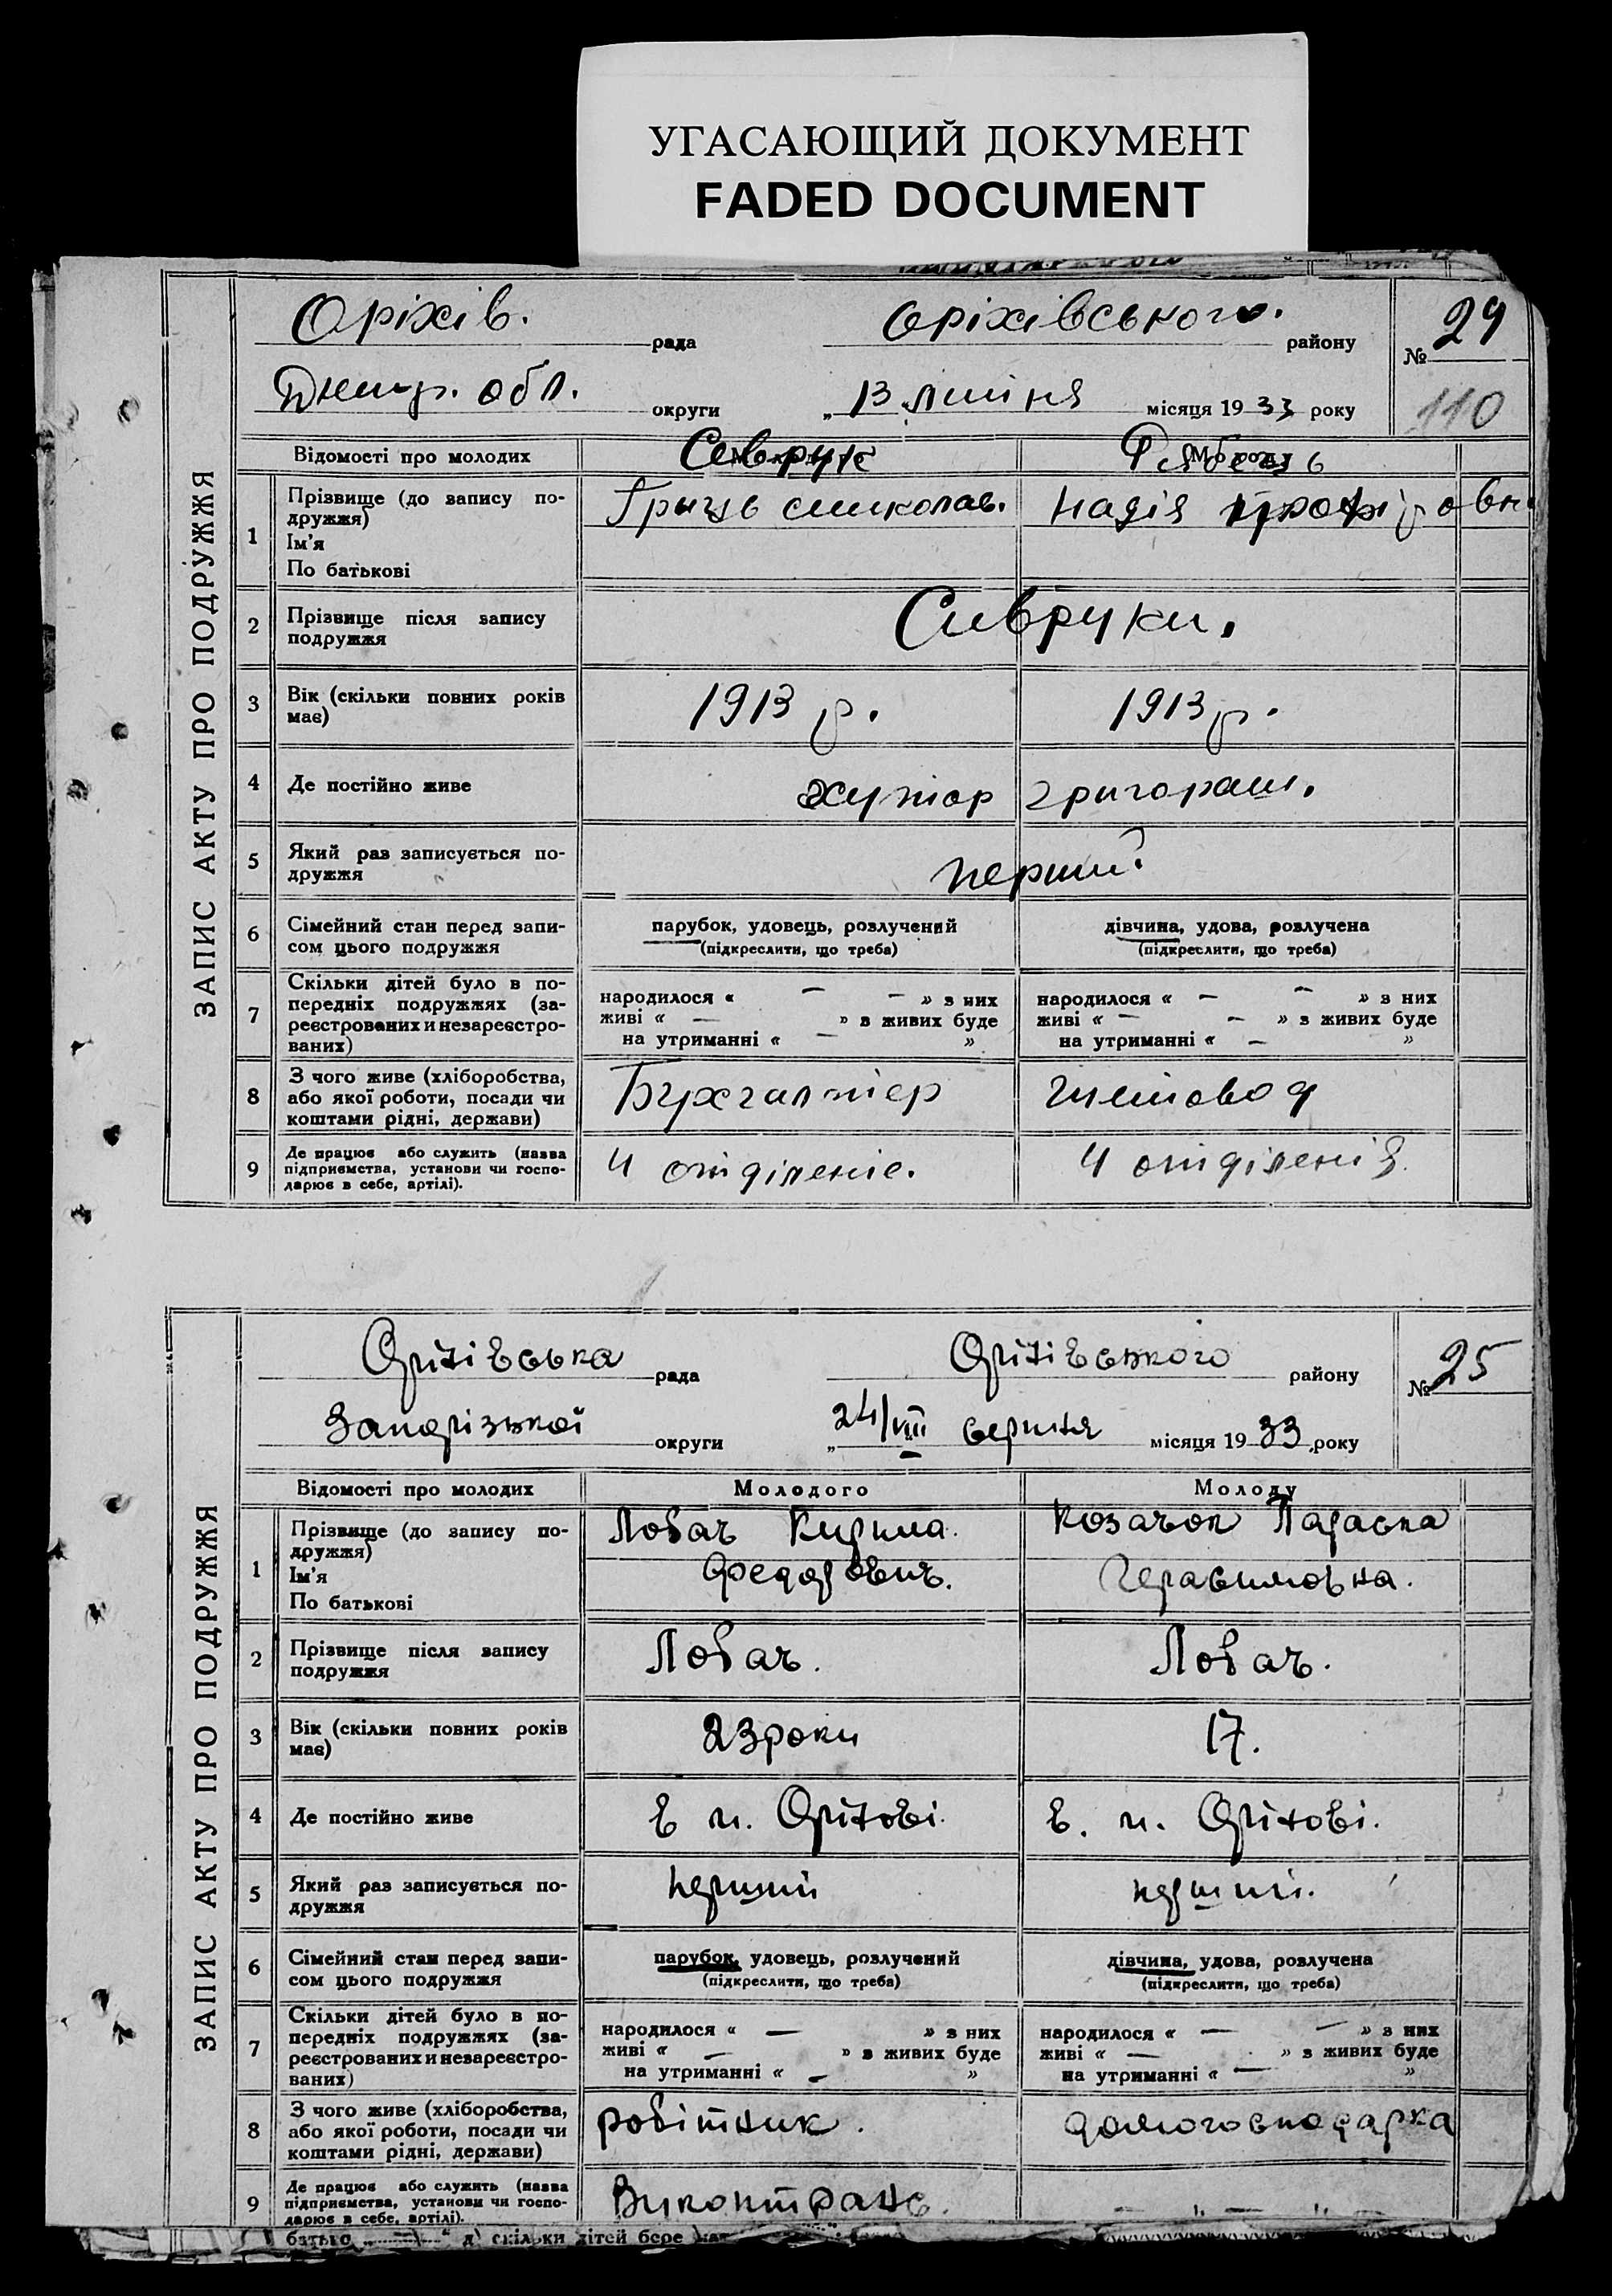 УГАСАЮЩИЙ ДОКУМЕНТ
FADED DOCUMENT
ЗАПИС АКТУ ПРО ПОДРУЖЖЯ
Оріхів. рада Оріхівського. району № 24
Днепр. обл. округи „13 липня місяця 1933 року 110
Відомості про молодих Севрук
1 Прізвище (до запису по-
дружжя) Гриць Миколаєв. Надія
Ім'я
По батькові
2 Прізвище після запису
подружжя Сивруки.
3 Вік (скільки повних років
має) 1913 р. 1913 р.
4 Де постійно живе хутор Григораш.
5 Який раз записується по-
дружжя перший
6 Сімейний стан перед запи-
сом цього подружжя
парубок, удовець, розлучений дівчина, удова, розлучена
(підкреслити, що треба) (підкреслити, що треба)
7 Скільки дітей було в по-
передніх подружжях (за-
реєстрованих и незареєстро-
ваних)
народилося « — — » з них народилося « — — » з них
живі « — » в живих буде живі « — — » з живих буде
на утриманні « — » на утриманні « — »
8 З чого живе (хліборобства,
або якої роботи, посади чи
коштами рідні, держави) Бухгалтер Щетовод
9 Де працює або служить (назва
підприємства, установи чи госпо-
дарює в себе, артілі). 4 отділеніє. 4 отділенія.
ЗАПИС АКТУ ПРО ПОДРУЖЖЯ
Оріхівська рада Оріхівського району № 25
Запорізької округи „24/VIII серпня місяця 1933 року
Відомості про молодих Молодого Молоду
1 Прізвище (до запису по-
дружжя) Лобач Кирила. Козачок Параска
Ім'я Федорович. Герасимовна.
По батькові
2 Прізвище після запису
подружжя Лобач. Лобач.
3 Вік (скільки повних років
має) 23 роки 17.
4 Де постійно живе в м. Оріхові. в. м. Оріхові.
5 Який раз записується по-
дружжя перший перший.
6 Сімейний стан перед запи-
сом цього подружжя
парубок, удовець, розлучений дівчина, удова, розлучена
(підкреслити, що треба) (підкреслити, що треба)
7 Скільки дітей було в по-
передніх подружжях (за-
реєстрованих и незареєстро-
ваних)
народилося « — » з них народилося « — — » з них
живі « — » в живих буде живі « — » з живих буде
на утриманні « — » на утриманні « — »
8 З чого живе (хліборобства,
або якої роботи, посади чи
коштами рідні, держави) робітник. домогосподарка
9 Де працює або служить (назва
підприємства, установи чи госпо-
дарює в себе, артілі). — " — " —
батько д) скільки дітей бере